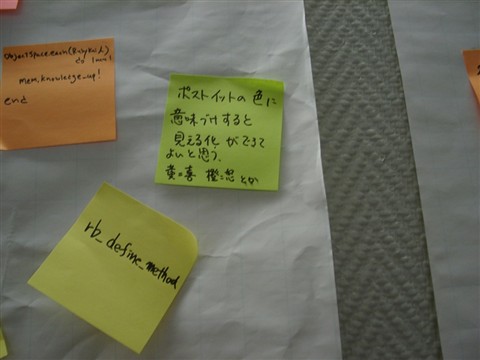 ObjectSpace.each(RubyKaiらん)
do |mem|
mem.knowledge_up!
end
ポストイットの色に
意味づけすると
見える化ができて
よいと思う。
黄=喜 橙=怒 とか
rb_define_method